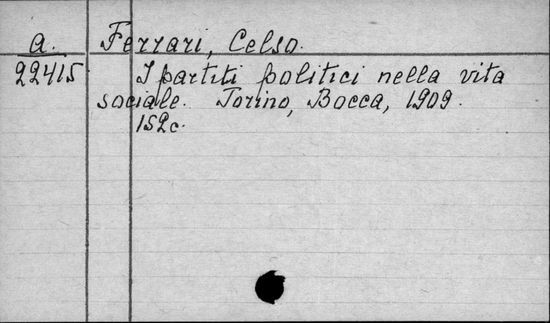 a. Ferrari, Celso.
22415 I partiti politici nella vita
sociale. Torino, Bocca, 1909.
152c.